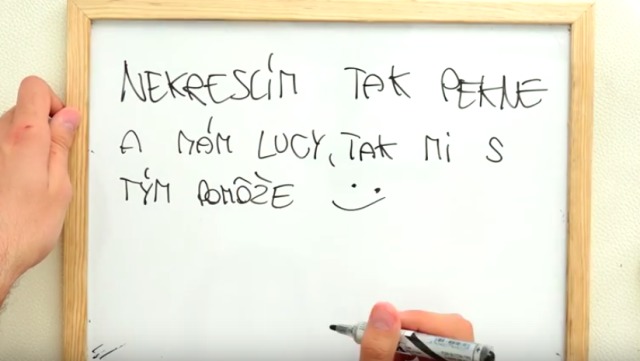 NEKRESLÍM TAK PEKNE
A MÁM LUCY, TAK MI S
TÝM POMÔŽE